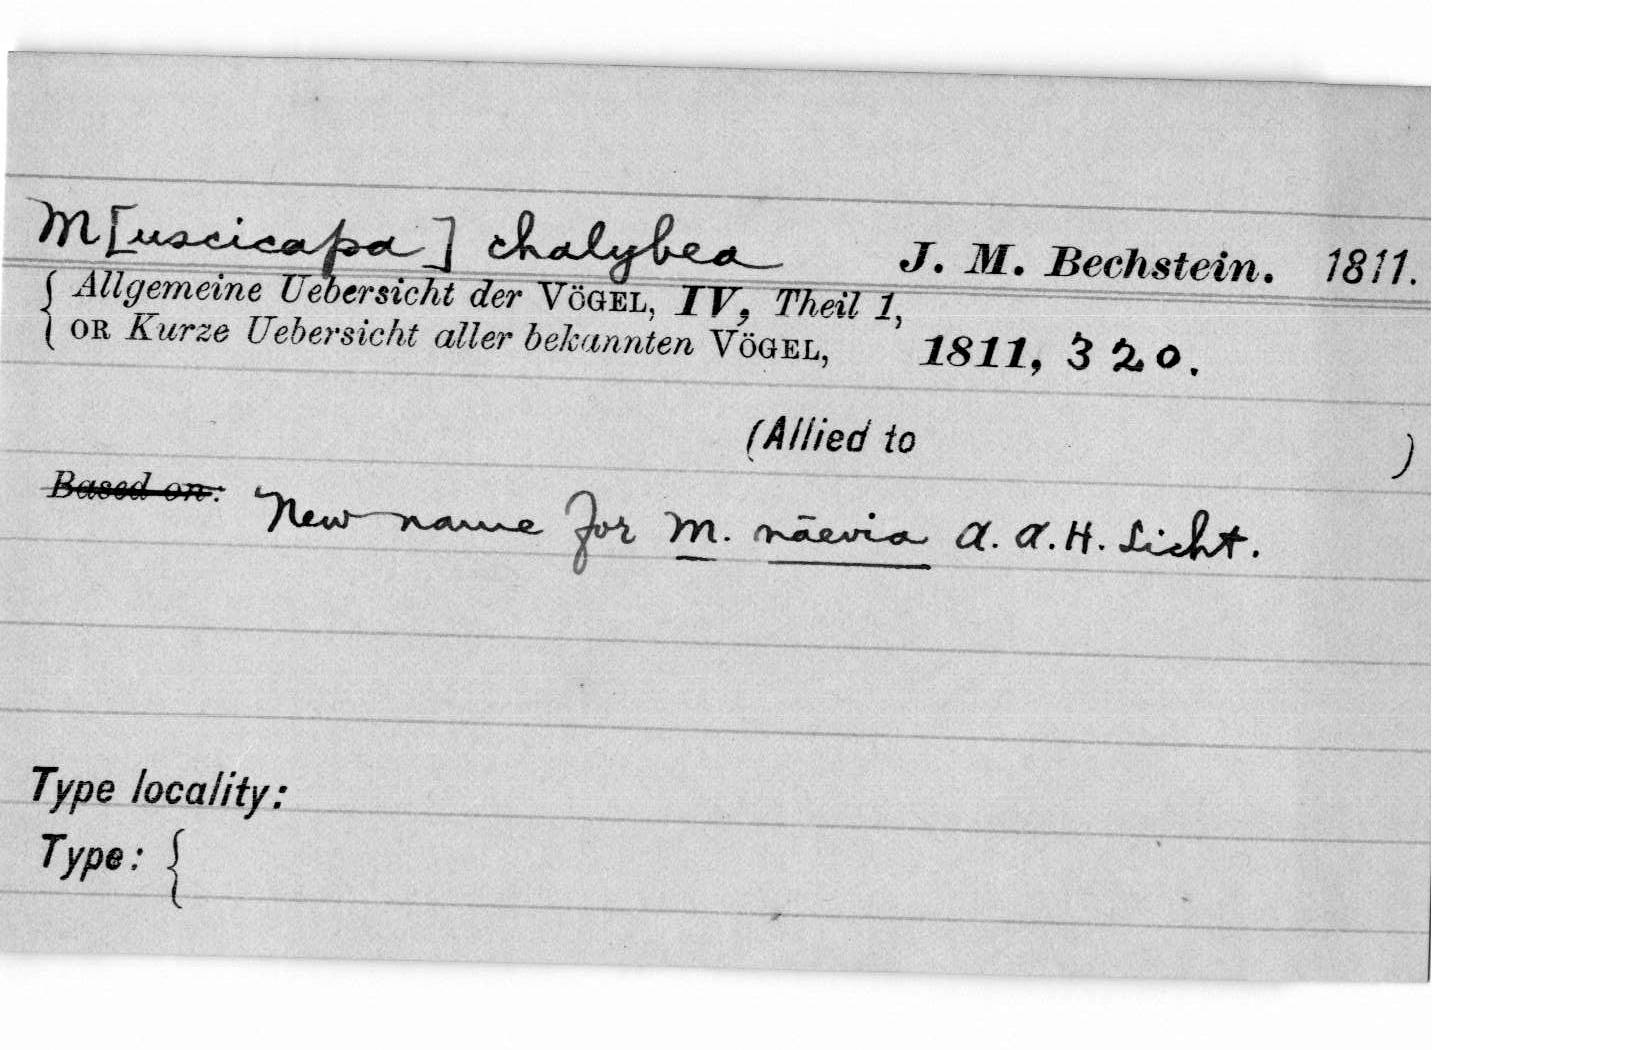 M[uscicapa] chalybea J. M. Bechstein. 1811.
{ Allgemeine Uebersicht der VÖGEL, IV, Theil 1,
OR Kurze Uebersicht aller bekannten VÖGEL, 1811, 320.
(Allied to )
Based on: New name for M. nāevia A. A. H. Licht.
Type locality:
Type: {